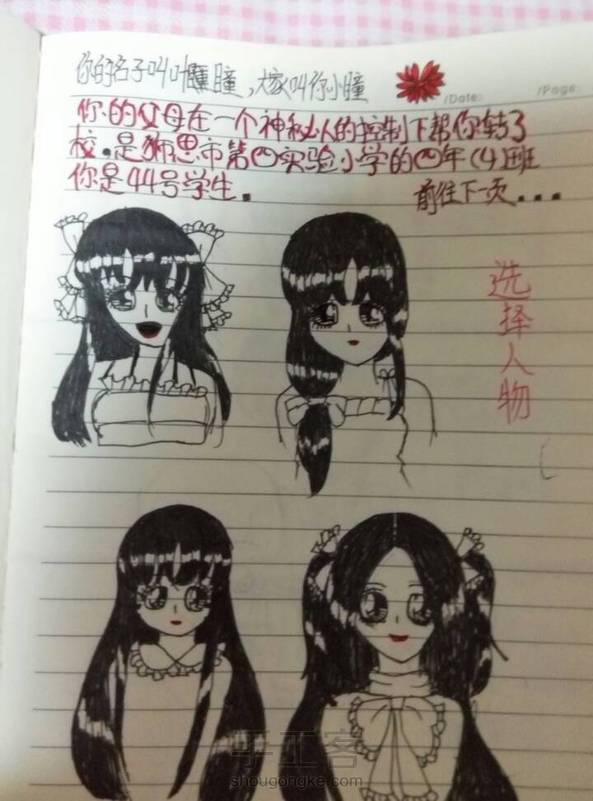 你的名子叫叶瞳,大家叫你小瞳
/Date:
/Page:
你的父母在一个神秘人的控制下帮你转了
校.是狮思市第四实验小学的四年(4)班
你是44号学生.
前往下一页...
选择人物
手工客
shougongke.com